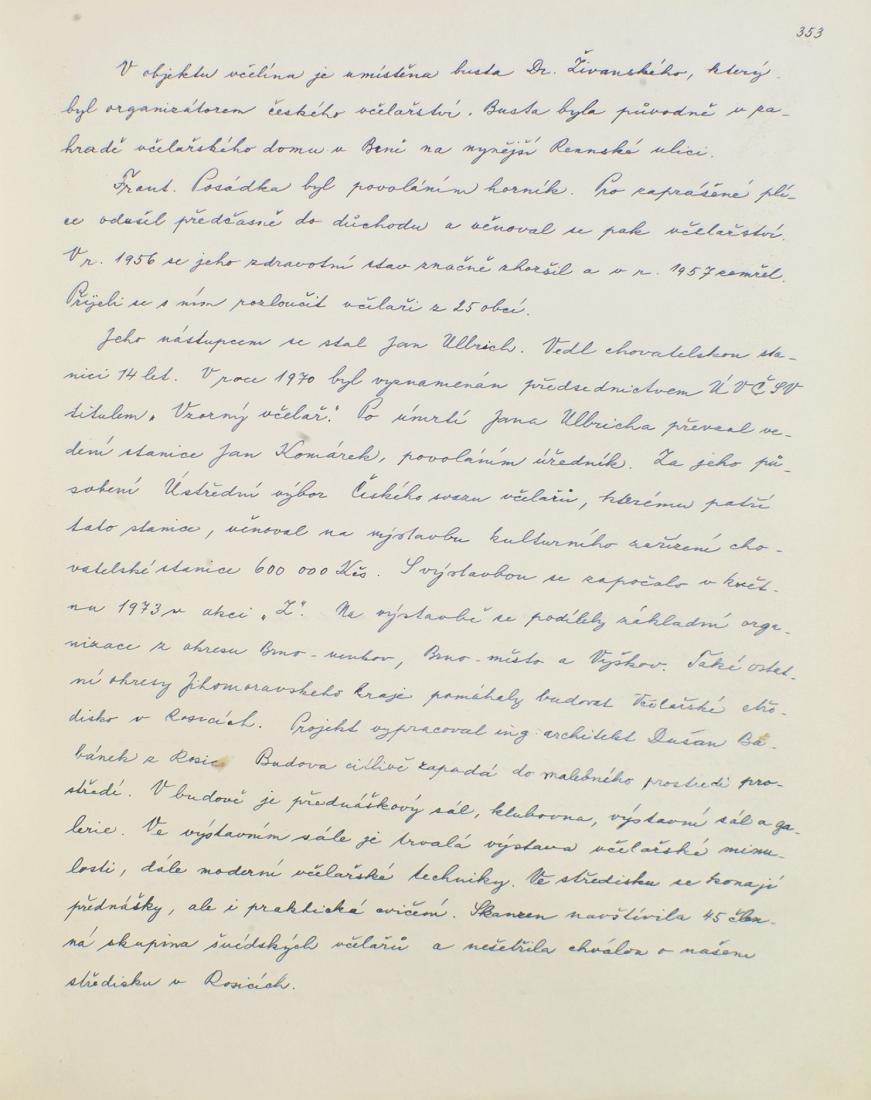 353
V objektu včelína je umístěna busta Dr. Živanského, který
byl organizátorem českého včelařství. Busta byla původně v za-
hradě včelařského domu v Brně na nynější Rennské ulici.
Frant. Posádka byl povoláním horník. Pro zaprášené plí-
ce odešel předčasně do důchodu a věnoval se pak včelařství.
V r. 1956 se jeho zdravotní stav značně zhoršil a v r. 1957 zemřel.
Přijeli se s ním rozloučit včelaři z 25 obcí.
Jeho nástupcem se stal Jan Ullbrich. Vedl chovatelskou sta-
nici 14 let. V roce 1970 byl vyznamenán předsednictvem ÚVČSV
titulem „Vzorný včelař." Po úmrtí Jana Ullbricha převzal ve-
dení stanice Jan Komárek, povoláním úředník. Za jeho pů-
sobení Ústřední výbor Českého svazu včelařů, kterému patří
tato stanice, věnoval na výstavbu kulturního zařízení cho-
vatelské stanice 600 000 Kčs. S výstavbou se započalo v květ-
nu 1973 v akci „Z". Na výstavbě se podílely základní orga-
nizace z okresu Brno-venkov, Brno-město a Vyškov. Také ostat-
ní okresy Jihomoravského kraje pomáhaly budovat včelařské stře-
disko v Rosicích. Projekt vypracoval ing. architekt Dušan Ba-
bánek z Rosic. Budova citlivě zapadá do malebného prostredí pro-
středí. V budově je přednáškový sál, klubovna, výstavní sál a ga-
lerie. Ve výstavním sále je trvalá výstava včelařské minu-
losti, dále moderní včelařské techniky. Ve středisku se konají
přednášky, ale i praktická cvičení. Skanzen navštívila 45 člen-
ná skupina švédských včelařů a nešetřila chválou o našem
středisku v Rosicích.